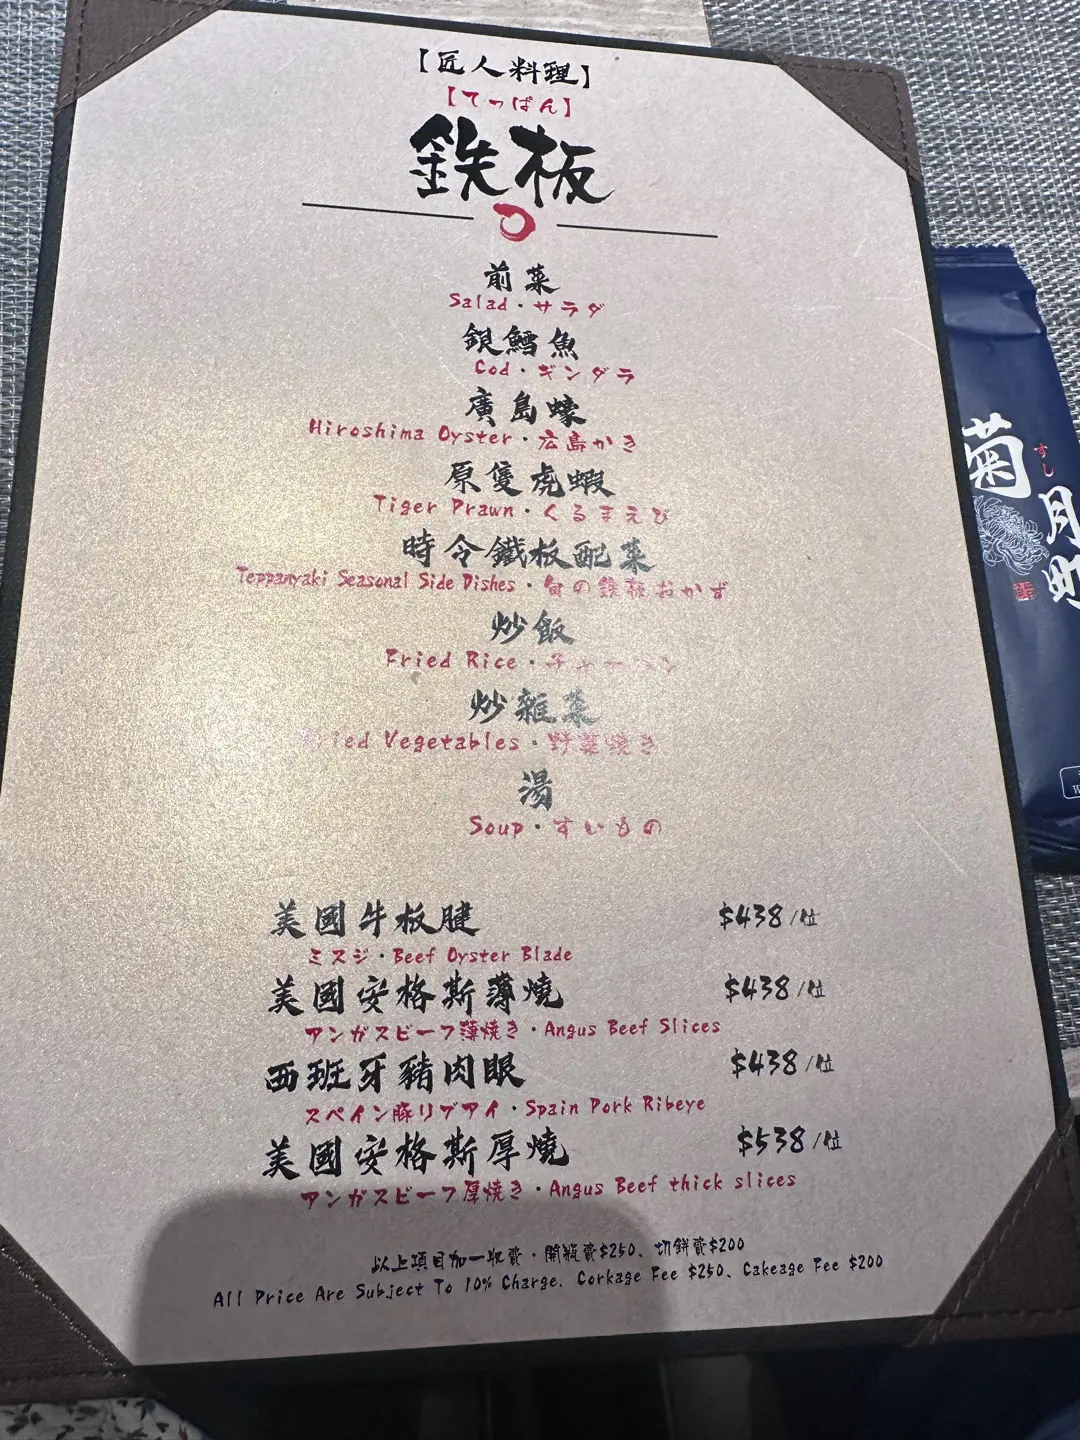 【匠人料理】
【てっぱん】
鉄板
前菜
Salad・サラダ
銀鱈魚
Cod・ギンダラ
廣島蠔
Hiroshima Oyster・広島かき
原隻虎蝦
Tiger Prawn・くるまえび
時令鐵板配菜
Teppanyaki Seasonal Side Dishes・旬の鉄板おかず
炒飯
Fried Rice・チャーハン
炒雜菜
Fried Vegetables・野菜焼き
湯
Soup・すいもの
美國牛板腱 $438/位
ミスジ・Beef Oyster Blade
美國安格斯薄燒 $438/位
アンガスビーフ薄焼き・Angus Beef Slices
西班牙豬肉眼 $438/位
スペイン豚リブアイ・Spain Pork Ribeye
美國安格斯厚燒 $538/位
アンガスビーフ厚焼き・Angus Beef thick slices
以上項目加一收費・開瓶費$250、切餅費$200
All Price Are Subject To 10% Charge. Corkage Fee $250、Cakeage Fee $200
菊
すし
月町